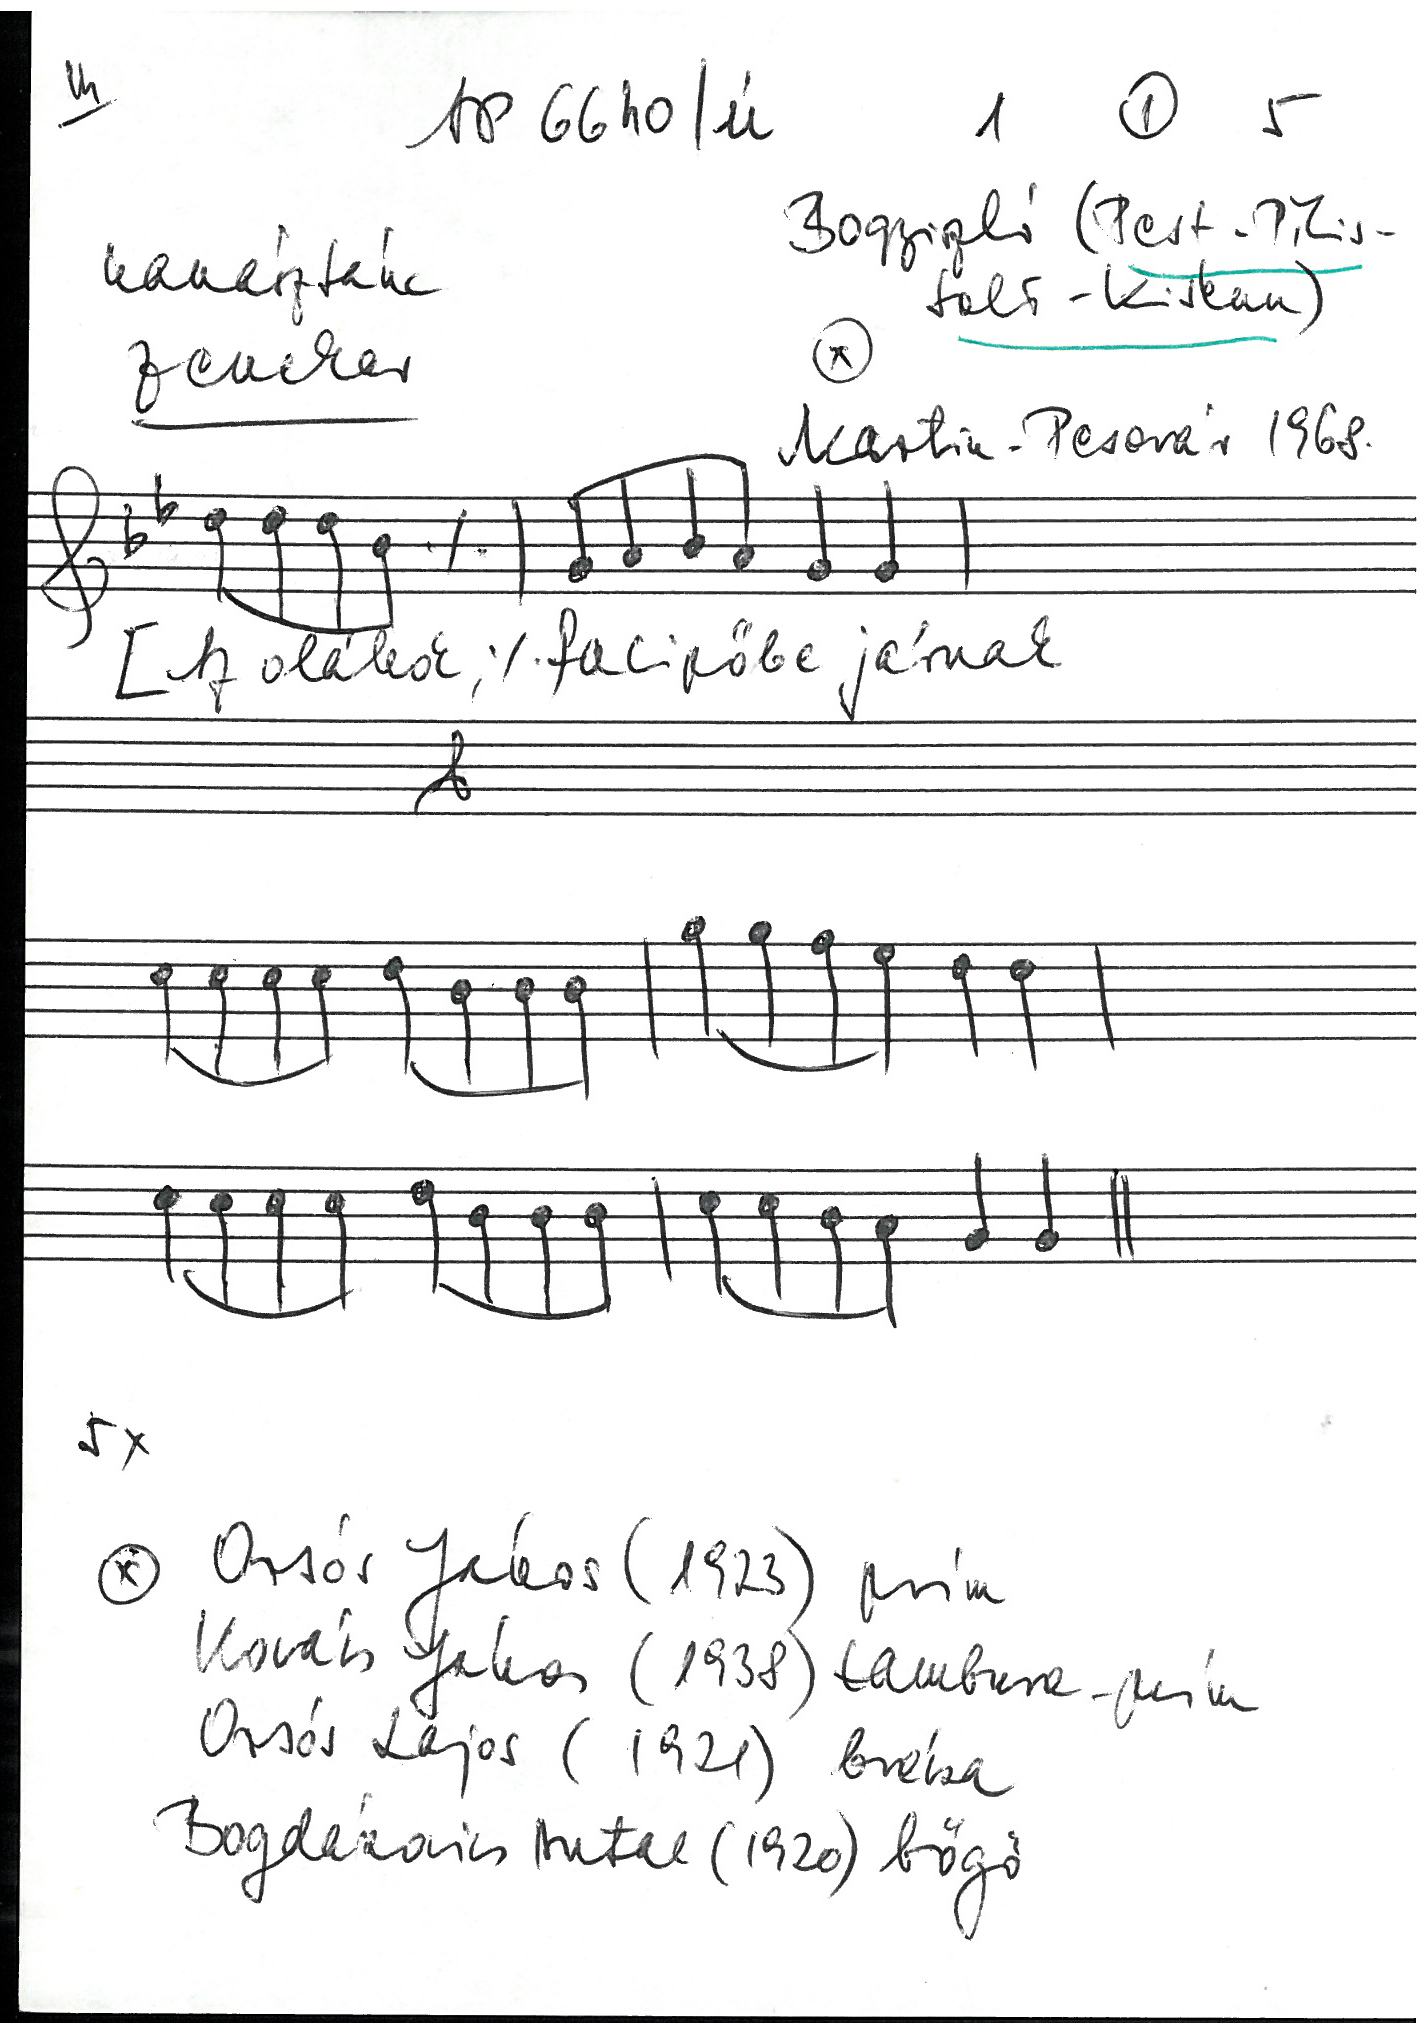 AP 6640/ü 1 ① 5
Bogyiszló (Pest-Pilis-
solt-Kiskun)
kanásztánc
zenekar
Martin-Pesovár 1968.
[Az oláhok, ·/. facipőbe járnak
A
5x
Orsós Jákos (1923) prím
Kovács Jákos (1938) tambura-prím
Orsós Lajos (1921) brácsa
Bogdánovics Antal (1920) bőgő